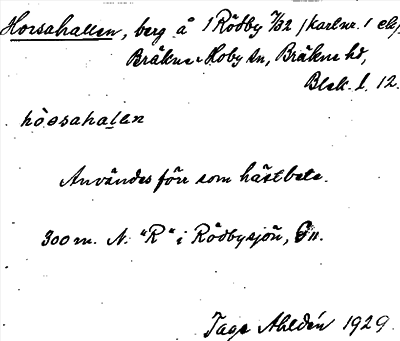 Horsahallen, berg å 1 Rödby 7/32 (kartnr. 1 ek),
Bräkne-Hoby sn, Bräkne hd,
Blek. l. 12.
hòssahalen
Användes förr som hästbete.
300 m. N. "R" i Rödbysjön,
Tage Ahldén 1929.